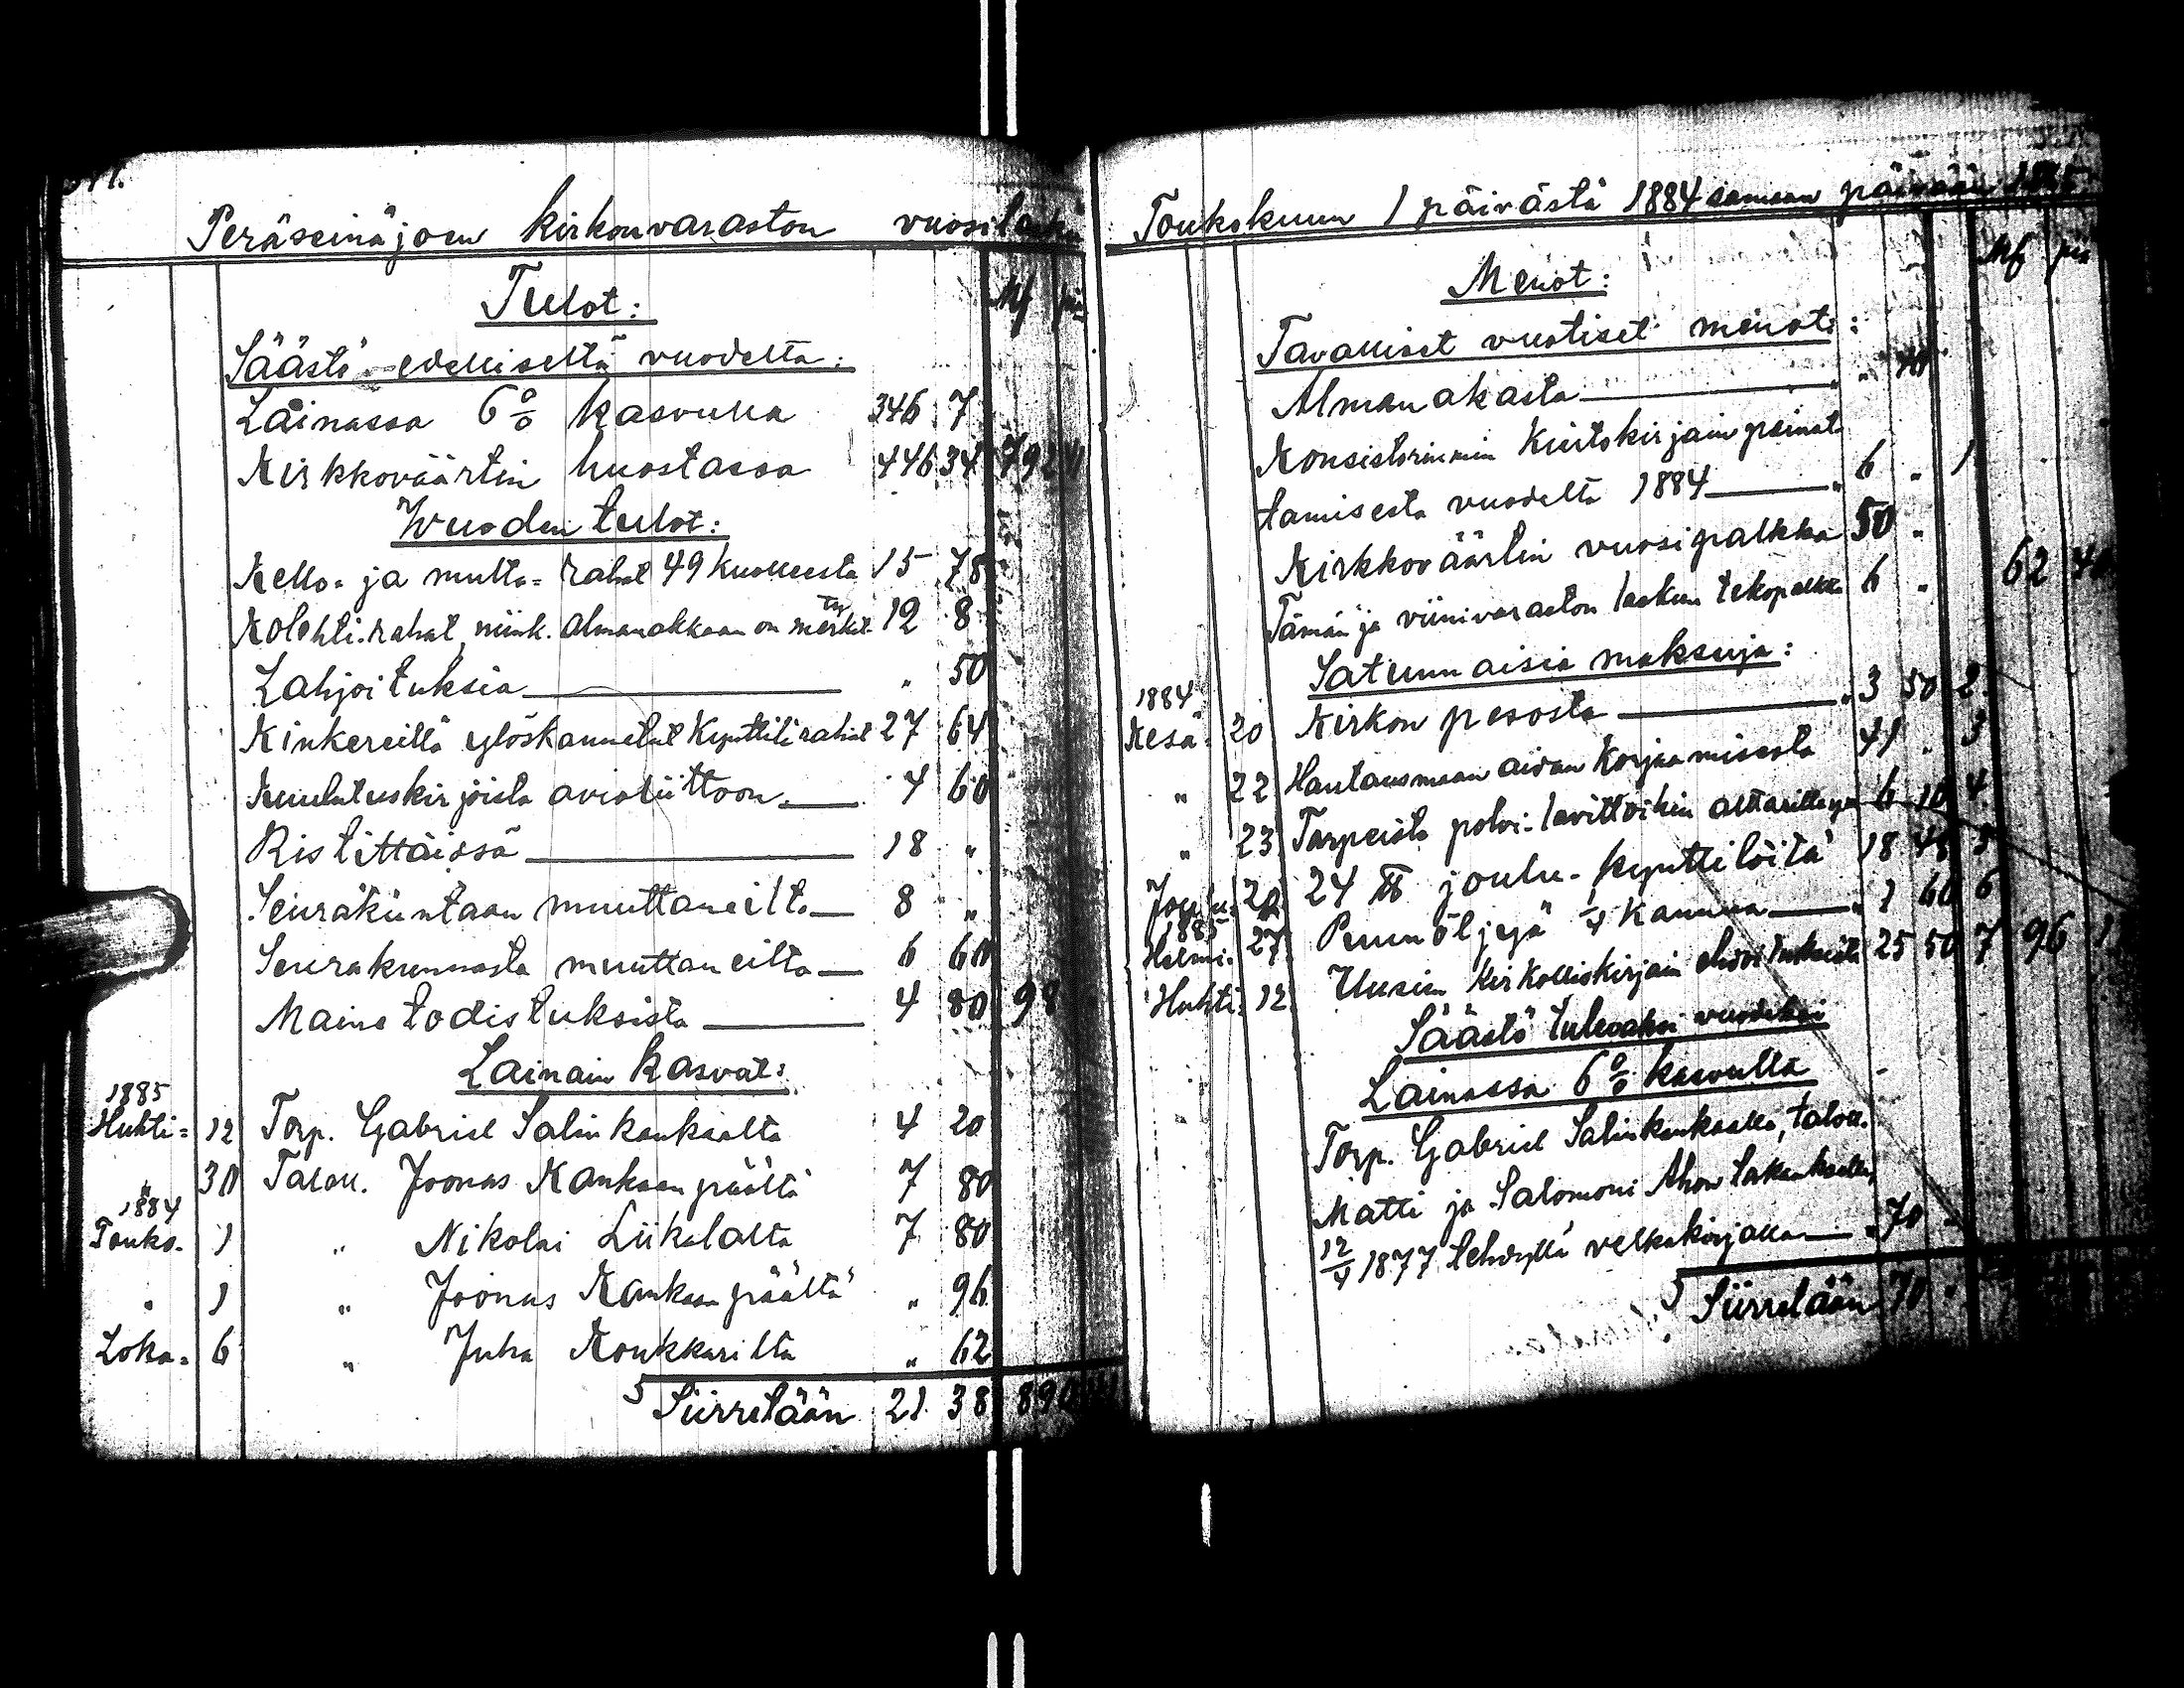 Peräseinäjoen kirkonvaraston vuosilasku
Tulot:
Mk pn
Säästö edelliseltä vuodelta:
Lainassa 6% kasvulla 346 7
Kirkkoväärtin huostassa 446 34 792 41
Wuoden tulot:
Kello- ja multa- rahat 49 kuolleesta 15 78
Kolehti-rahat, niink. almanakkaan on merkit- 12 8
ty
Lahjoituksia — „ 50
Kinkereillä ylöskannetut kynttilirahat 27 64
Kuulutuskirjoista avioliittoon — 4 60
Ristittäissä — 18 „
Seurakuntaan muuttaneilta — 8 „
Seurakunnasta muuttaneilta — 6 60
Maine todistuksista — 4 80 98
Lainain kasvat:
1885
Huhti- 12 Torp. Gabriel Salinkankaalta 4 20
„ 30 Taloll. Joonas Kankaanpäältä 7 80
1884
Touko- 1 „ Nikolai Liikalalta 7 80
„ 1 „ Joonas Kankaanpäältä „ 96
Loka- 6 „ Juha Koukkarilta „ 62
Siirretään 21 38 890
Toukokuun 1 päivästä 1884 samaan päivään 1885
Menot:
Mk pn
Tavalliset vuotiset menot:
Almanakasta —
Konsistoriumin Kiertokirjain painat-
tamisesta vuodelta 1884 — „ 6 „ 1
Kirkkoväärtin vuosipalkka 50 „
Tämän ja viinivaraston laskun tekopalkka 6 „ 62 40
Satunnaisia maksuja:
1884
Kesä- 20 Kirkon pesosta — „ 3 50 2
„ 22 Hautausmaan aidan korjaamisesta 41 „ 3
„ 23 Tarpeista polvi-levittoihin alttarille 6 10 4
Joulu- 24 ℔ joulu-kynttilöitä 18 48 5
1885
Helmi- 27 Puuöljyä ¼ kannua — „ 1 60 6
Huhti- 12 Uusien kirkolliskirjain ehdoituksista 25 50 7 96 1
Säästö tulevaksi vuodeksi
Lainassa 6% kasvulla
Torp. Gabriel Salinkankaalla, taloll.
Matti ja Salomoni
12/4 1877 tehdyllä velkakirjalla — „ 70 „
Siirretään 70 „